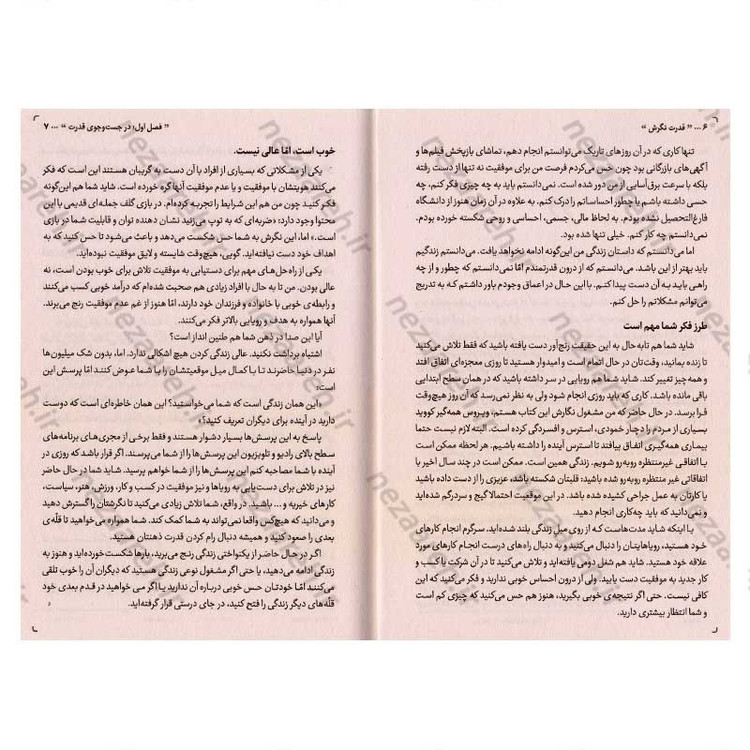 ۶ ... " قدرت نگرش "
تنها کاری که در آن روزهای تاریک می‌توانستم انجام دهم، تماشای بازپخش فیلم‌ها و
آگهی‌های بازرگانی بود چون حس می‌کردم فرصت من برای موفقیت نه تنها از دست رفته
بلکه با سرعت برق‌آسایی از من دور شده است. نمی‌دانستم باید به چه چیزی فکر کنم، چه
حسی داشته باشم یا چطور احساساتم را درک کنم. به علاوه در آن زمان هنوز از دانشگاه
فارغ‌التحصیل نشده بودم. به لحاظ مالی، جسمی، احساسی و روحی شکسته خورده بودم.
نمی‌دانستم چه کار کنم. خیلی تنها شده بودم.
اما می‌دانستم که داستان زندگی من این‌گونه ادامه نخواهد یافت. می‌دانستم زندگیم
باید بهتر از این باشد. می‌دانستم که از درون قدرتمندم اما نمی‌دانستم که چطور و از چه
راهی باید به آن دست پیدا کنم. با این حال در اعماق وجودم باور داشتم که به تدریج
می‌توانم مشکلاتم را حل کنم.
طرز فکر شما مهم است
شاید شما هم تابه‌حال به این حقیقت رنج‌آور دست یافته باشید که فقط تلاش می‌کنید
تا زنده بمانید، وقت‌تان در حال اتمام است و امیدوار هستید تا روزی معجزه‌ای اتفاق افتد
و همه‌چیز تغییر کند. شاید شما هم رویایی در سر داشته باشید که در همان سطح ابتدایی
باقی مانده باشد. کاری که باید روزی انجام شود ولی به نظر نمی‌رسد که آن روز هیچ‌وقت
فرا برسد. در حال حاضر که من مشغول نگارش این کتاب هستم، ویروس همه‌گیر کووید
بسیاری از مردم را دچار خمودی، استرس و افسردگی کرده است. البته لازم نیست حتما
بیماری همه‌گیری اتفاق بیافتد تا استرس آینده را داشته باشیم. هر لحظه ممکن است
با اتفاقی غیرمنتظره روبه‌رو شویم. زندگی همین است. ممکن است در چند سال اخیر با
اتفاقاتی غیر منتظره روبه‌رو شده باشید: قلبتان شکسته باشد، عزیزی را از دست داده باشید
یا کارتان به عمل جراحی کشیده شده باشد. در این موقعیت احتمالا گیج و سردرگم شده‌اید
و نمی‌دانید که باید چه‌کاری انجام دهید.
یا اینکه شاید مدت‌هاست که از روی مبل زندگی بلند شده‌اید، سرگرم انجام کارهای
خود هستید، رویاهایتان را دنبال می‌کنید و به دنبال راه‌های درست انجام کارهای مورد
علاقه خود هستید. شاید هم شغل دومی یافته‌اید و تلاش می‌کنید تا در آن شرکت یا کسب و
کار جدید به موفقیت دست یابید. ولی از درون احساس خوبی ندارید و فکر می‌کنید که این
کافی نیست. حتی اگر نتیجه‌ی خوبی بگیرید، هنوز هم حس می‌کنید که چیزی کم است
و شما انتظار بیشتری دارید.
" فصل اول؛ در جست‌وجوی قدرت " ... ۷
خوب است، امّا عالی نیست.
یکی از مشکلاتی که بسیاری از افراد با آن دست به گریبان هستند این است که فکر
می‌کنند هویتشان با موفقیت و یا عدم موفقیت آنها گره خورده است. شاید شما هم این‌گونه
فکر کنید چون من هم این شرایط را تجربه کرده‌ام. در بازی گلف جمله‌ای قدیمی با این
محتوا وجود دارد؛ «ضربه‌ای که به توپ می‌زنید نشان دهنده توان و قابلیت شما در بازی
است.» اما، این نگرش به شما حس شکست می‌دهد و باعث می‌شود تا حس کنید که به
اهداف خود دست نیافته‌اید. گویی، هیچ‌وقت شایسته و لایق موفقیت نبوده‌اید.
یکی از راه‌حل‌های مهم برای دستیابی به موفقیت تلاش برای خوب بودن است، نه
عالی بودن. من تا به حال با افراد زیادی هم صحبت شده‌ام که درآمد خوبی کسب می‌کنند
و رابطه‌ی خوبی با خانواده و فرزندان خود دارند، امّا هنوز از غم عدم موفقیت رنج می‌برند.
آنها همواره به هدف و رویایی بالاتر فکر می‌کنند.
آیا این صدا در ذهن شما هم طنین انداز است؟
اشتباه برداشت نکنید. عالی زندگی کردن هیچ اشکالی ندارد. اما، بدون شک میلیون‌ها
نفر در دنیا حاضرند تا با کمال میل موقعیتشان را با شما عوض کنند امّا پرسش این
است:
«این همان زندگی است که شما می‌خواستید؟ این همان خاطره‌ای است که دوست
دارید در آینده برای دیگران تعریف کنید؟»
پاسخ به این پرسش‌ها بسیار دشوار هستند و فقط برخی از مجری‌های برنامه‌های
سطح بالای رادیو و تلویزیون این پرسش‌ها را از شما می‌پرسند. اگر قرار باشد که روزی در
آینده با شما مصاحبه کنم این پرسش‌ها را از شما خواهم پرسید. شاید شما در حال حاضر
نیز در تلاش برای دست‌یابی به رویاها و نیز موفقیت در کسب و کار، ورزش، هنر، سیاست،
کارهای خیریه و ... باشید. در واقع، شما تلاش زیادی می‌کنید تا نگرشتان را گسترش دهید
و می‌دانید که هیچ‌کس واقعا نمی‌تواند به شما کمک کند. شما همواره می‌خواهید تا قلّه‌ی
بعدی را صعود کنید و همیشه دنبال رام کردن قدرت ذهنتان هستید.
اگر در حال حاضر از یکنواختی زندگی رنج می‌برید، بارها شکست خورده‌اید و هنوز به
زندگی ادامه می‌دهید، یا حتی اگر مشغول نوعی زندگی هستید که دیگران آن را خوب تلقی
می‌کنند امّا خودتان حس خوبی درباره آن ندارید یا اگر می‌خواهید در قدم بعدی خود
قلّه‌های دیگر زندگی را فتح کنید، در جای درستی قرار گرفته‌اید.
nezadeh.ir